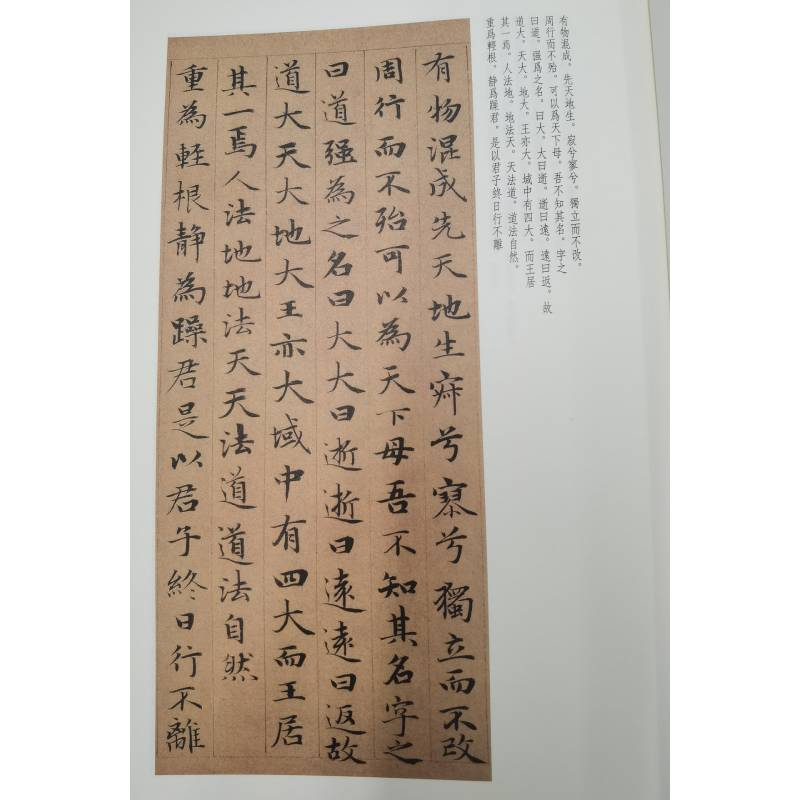 有物混成。先天地生。寂兮寥兮。獨立而不改。
周行而不殆。可以爲天下母。吾不知其名。字之
曰道。强爲之名。曰大。大曰逝。逝曰遠。遠曰返。故
道大。天大。地大。王亦大。域中有四大。而王居
其一焉。人法地。地法天。天法道。道法自然。
重爲輕根。静爲躁君。是以君子終日行不離
有物混成先天地生寂兮寥兮獨立而不改
周行而不殆可以為天下母吾不知其名字之
曰道强為之名曰大大曰逝逝曰遠遠曰返故
道大天大地大王亦大域中有四大而王居
其一焉人法地地法天天法道道法自然
重為輕根静為躁君是以君子終日行不離